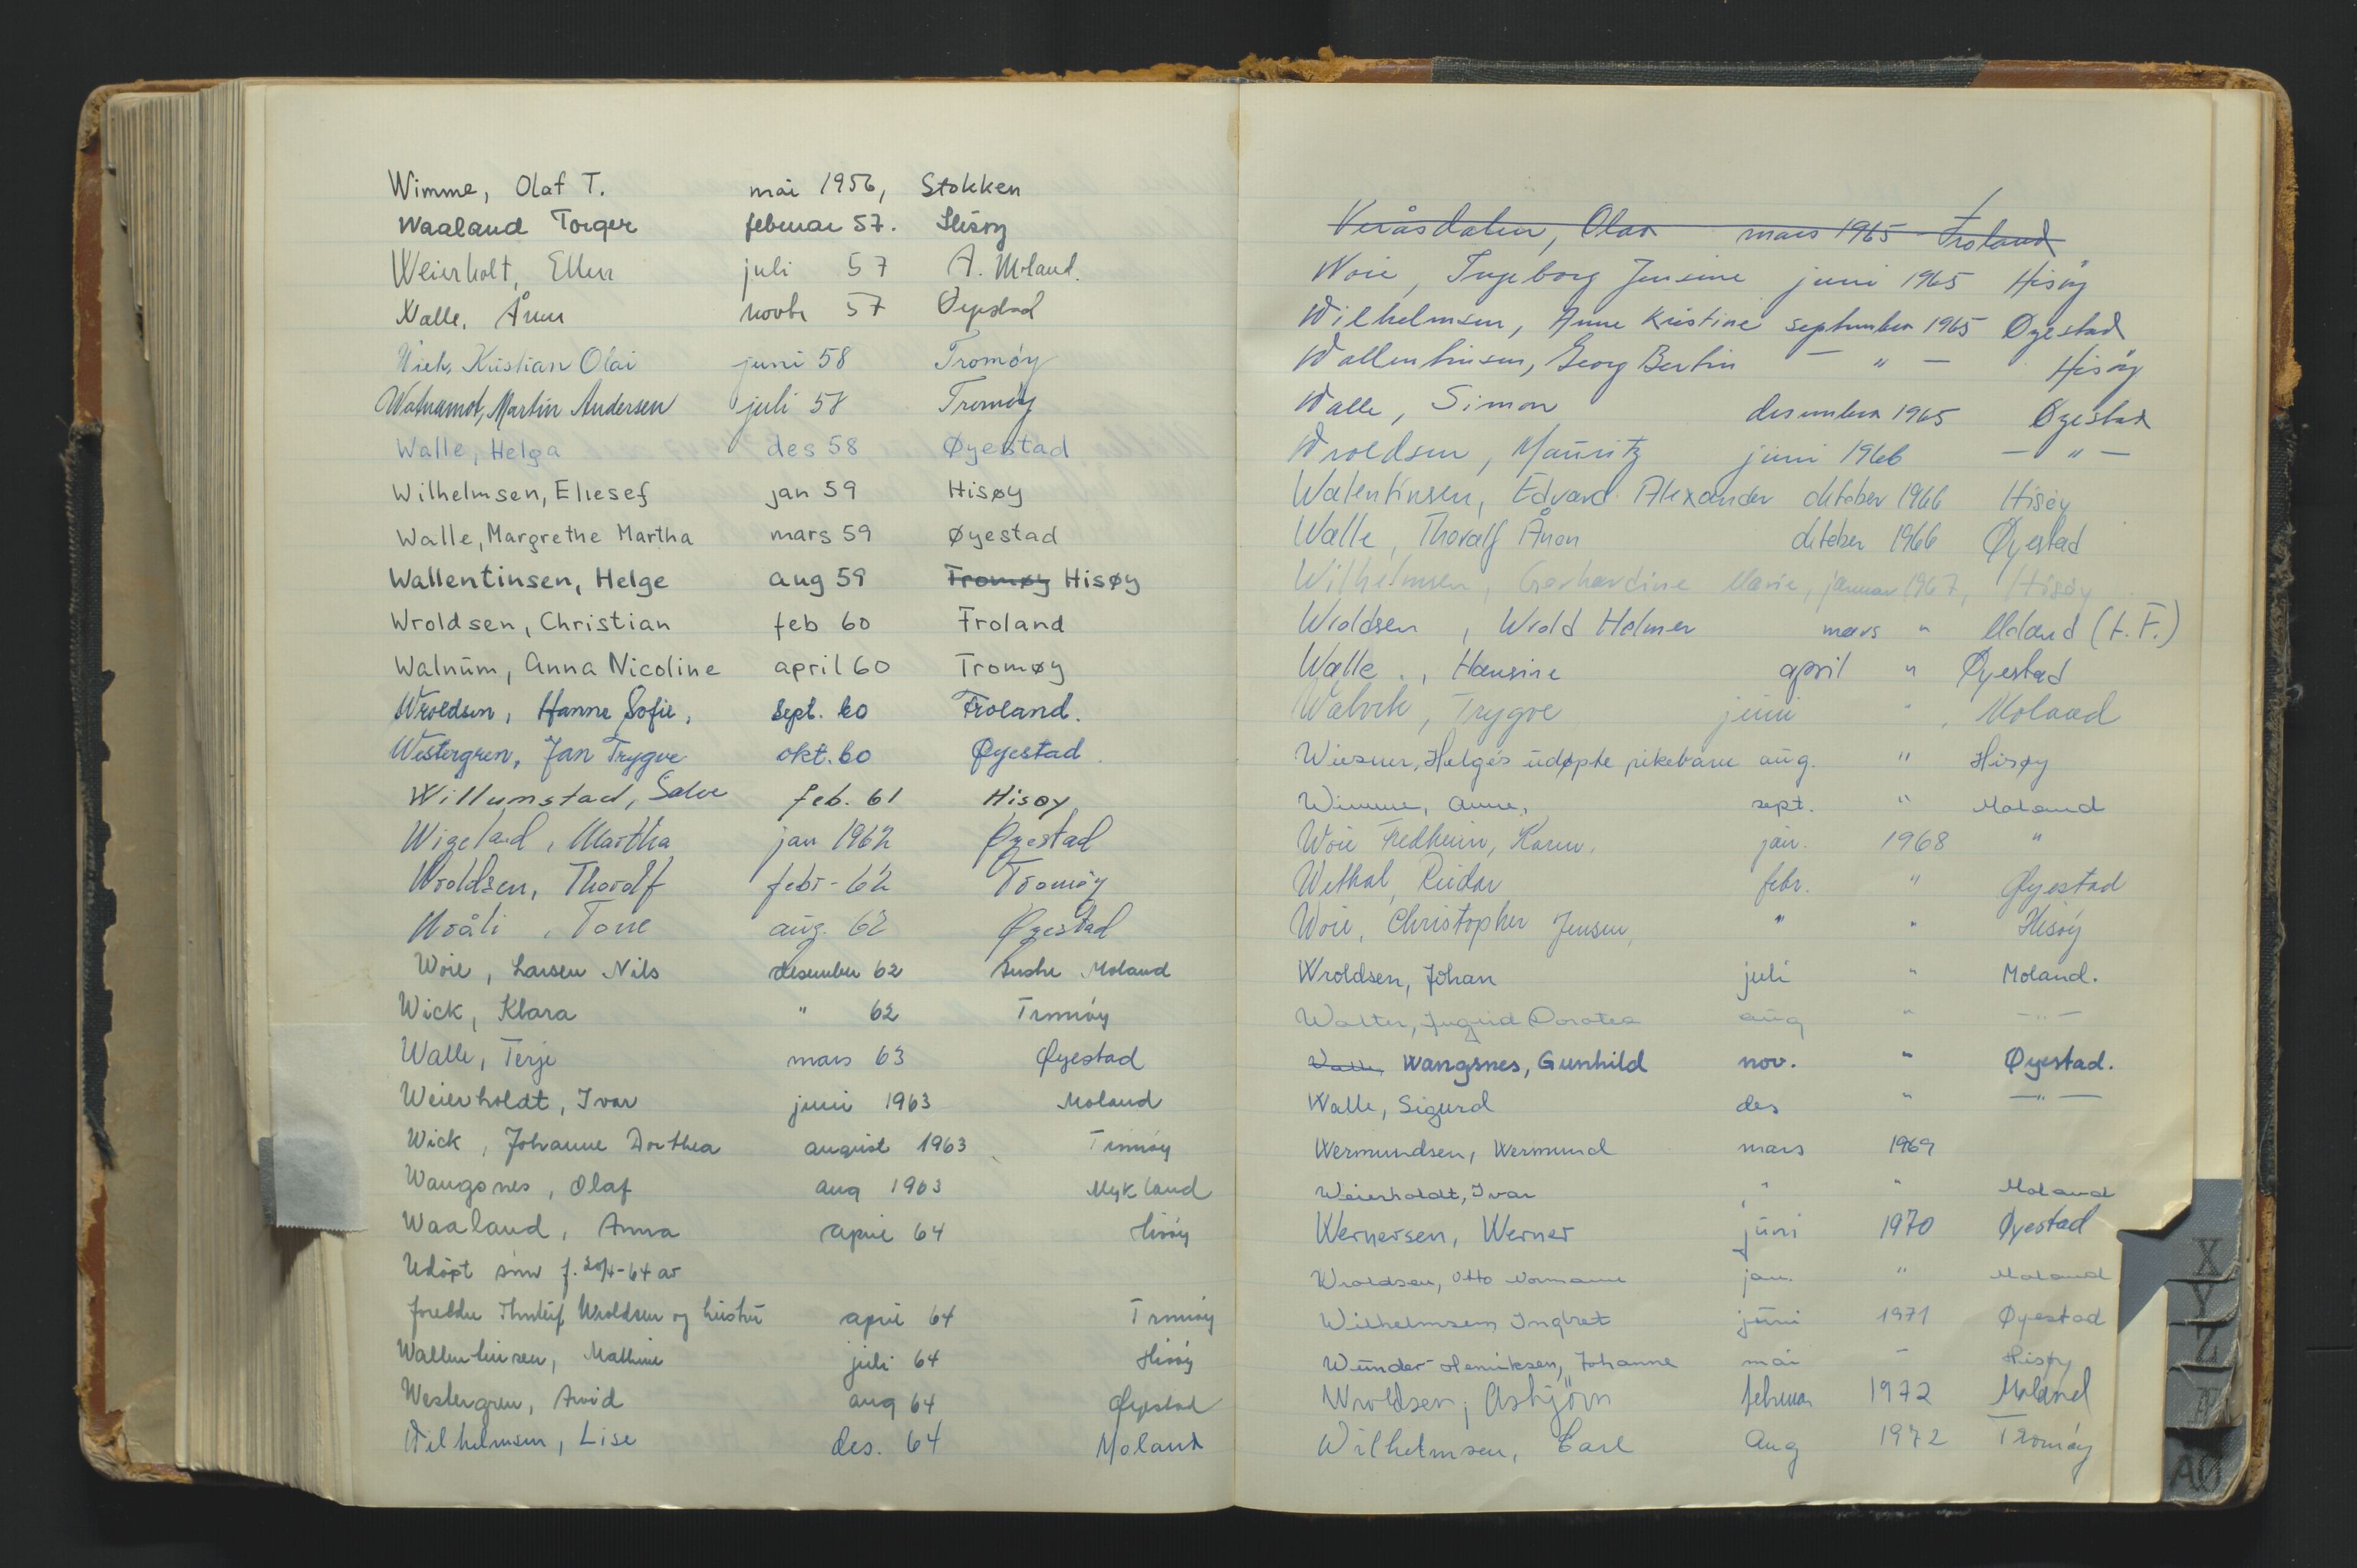 Wimme, Olaf T. mai 1956, Stokken
Waaland Torger februar 57. Hisøy
Weierholt, Ellen juli 57 A. Moland.
Walle, Ånen novbr 57 Øyestad
Wich, Kristian Olai juni 58 Tromøy
Martin Andersen juli 58 Tromøy
Walle, Helga des 58 Øyestad
Wilhelmsen, Eliesef jan 59 Hisøy
Walle, Margrethe Martha mars 59 Øyestad
Wallentinsen, Helge aug 59 Tromøy Hisøy
Wroldsen, Christian feb 60 Froland
Walnum, Anna Nicoline april 60 Tromøy
Wroldsen, Hanne Sofie, Sept. 60 Froland.
Westergren, Jan Trygve okt. 60 Øyestad
Willumstad, Salve feb. 61 Hisøy
Wigeland, Martha jan 1962 Øyestad
Wroldsen, Thorolf febr - 62 Tromøy
Wråli, Tone aug. 62 Øyestad
Woie, Larsen Nils desember 62 Austre Moland
Wick, Klara " 62 Tromøy
Walle, Terje mars 63 Øyestad
Weierholdt, Ivar juni 1963 Moland
Wick, Johanne Dorthea august 1963 Tromøy
Wangsnes, Olaf aug 1963 Mykland
Waaland, Anna april 64 Hisøy
Udöpt sönn f. 20/4-64 av
foreldre Wroldsen og hustru april 64 Tromøy
Wallentinsen, Mathine juli 64 Hisøy
Westergren, Arvid aug 64 Øyestad
Wilhelmsen, Lise des. 64 Moland
Veråsdalen, Olav mars 1965 Froland
Woie, Ingeborg Jensine juni 1965 Hisøy
Wilhelmsen, Anne Kristine september 1965 Øyestad
Wallentinsen, Georg Bertin — " — Hisøy
Walle, Simon desember 1965 Øyestad
Wroldsen, Mauritz juni 1966 — " —
Walentinsen, Edvard Alexander oktober 1966 Hisøy
Walle, Thoralf Ånon oktober 1966 Øyestad
Wilhelmsen, Gerhardine Marie, januar 1967, Hisøy
Wroldsen, Wrold Helmer mars " Moland (t. F.)
Walle, Hansine april " Øyestad
Walvik, Trygve juni " Moland
Wiesner, Helge's udøpte pikebarn aug. " Hisøy
Wimme, Anne, sept. " Moland
Woie Fredheim, Karen, jan. 1968 "
Wethal, Reidar febr. " Øyestad
Woie, Christopher Jensen, " " Hisøy
Wroldsen, Johan juli " Moland.
Walter, Ingrid Dorotea aug " — " —
Walle, Wangsnes, Gunhild nov. " Øyestad.
Walle, Sigurd des " — " —
Wermundsen, Wermund mars 1969
Weierholdt, Ivar " " Moland
Wernersen, Werner juni 1970 Øyestad
Wroldsen, Otto Normann jan. " Moland
Wilhelmsen Ingbret juni 1971 Øyestad
Wunder-Henriksen, Johanne mai " Hisøy
Wroldsen, Asbjörn februar 1972 Moland
Wilhelmsen, Carl Aug 1972 Tromøy
X
Y
Z
Æ
AØ